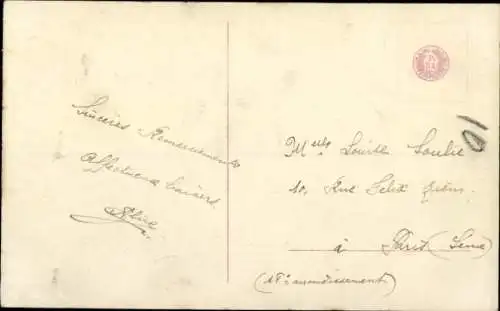 Sincères Remerciements
affectueux baisers
Mlle Louise Soulie
10, Rue Felix Ziem
à Paris (Seine)
(18e arrondissement)